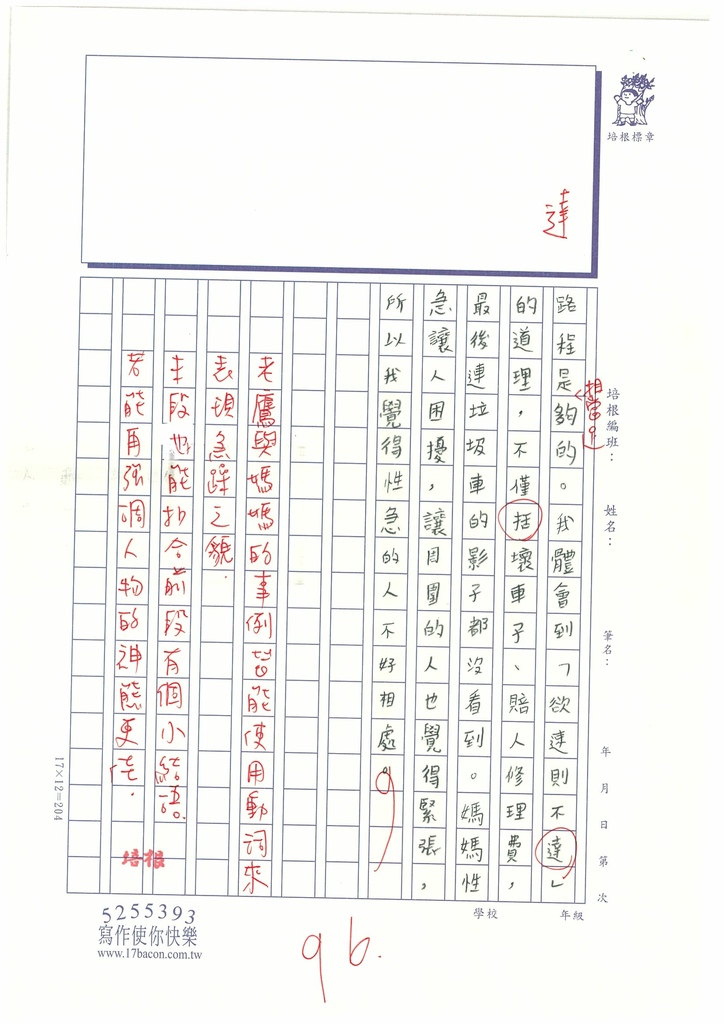 培根標章
達
路程是夠的。我體會到「欲速則不達」
相當
的道理，不僅括壞車子、賠人修理費，
最後連垃圾車的影子都沒看到。媽媽性
急讓人困擾，讓周圍的人也覺得緊張，
所以我覺得性急的人不好相處。
老鷹與媽媽的事例皆能使用動詞來
表現急躁之貌.
末段也能扣合前段有個小結語。
若能再強調人物的神態更佳.
培根
培根編班：
姓名：
筆名：
年 月 日 第 次
學校 年級
17×12=204
5255393
寫作使你快樂
www.17bacon.com.tw
96.